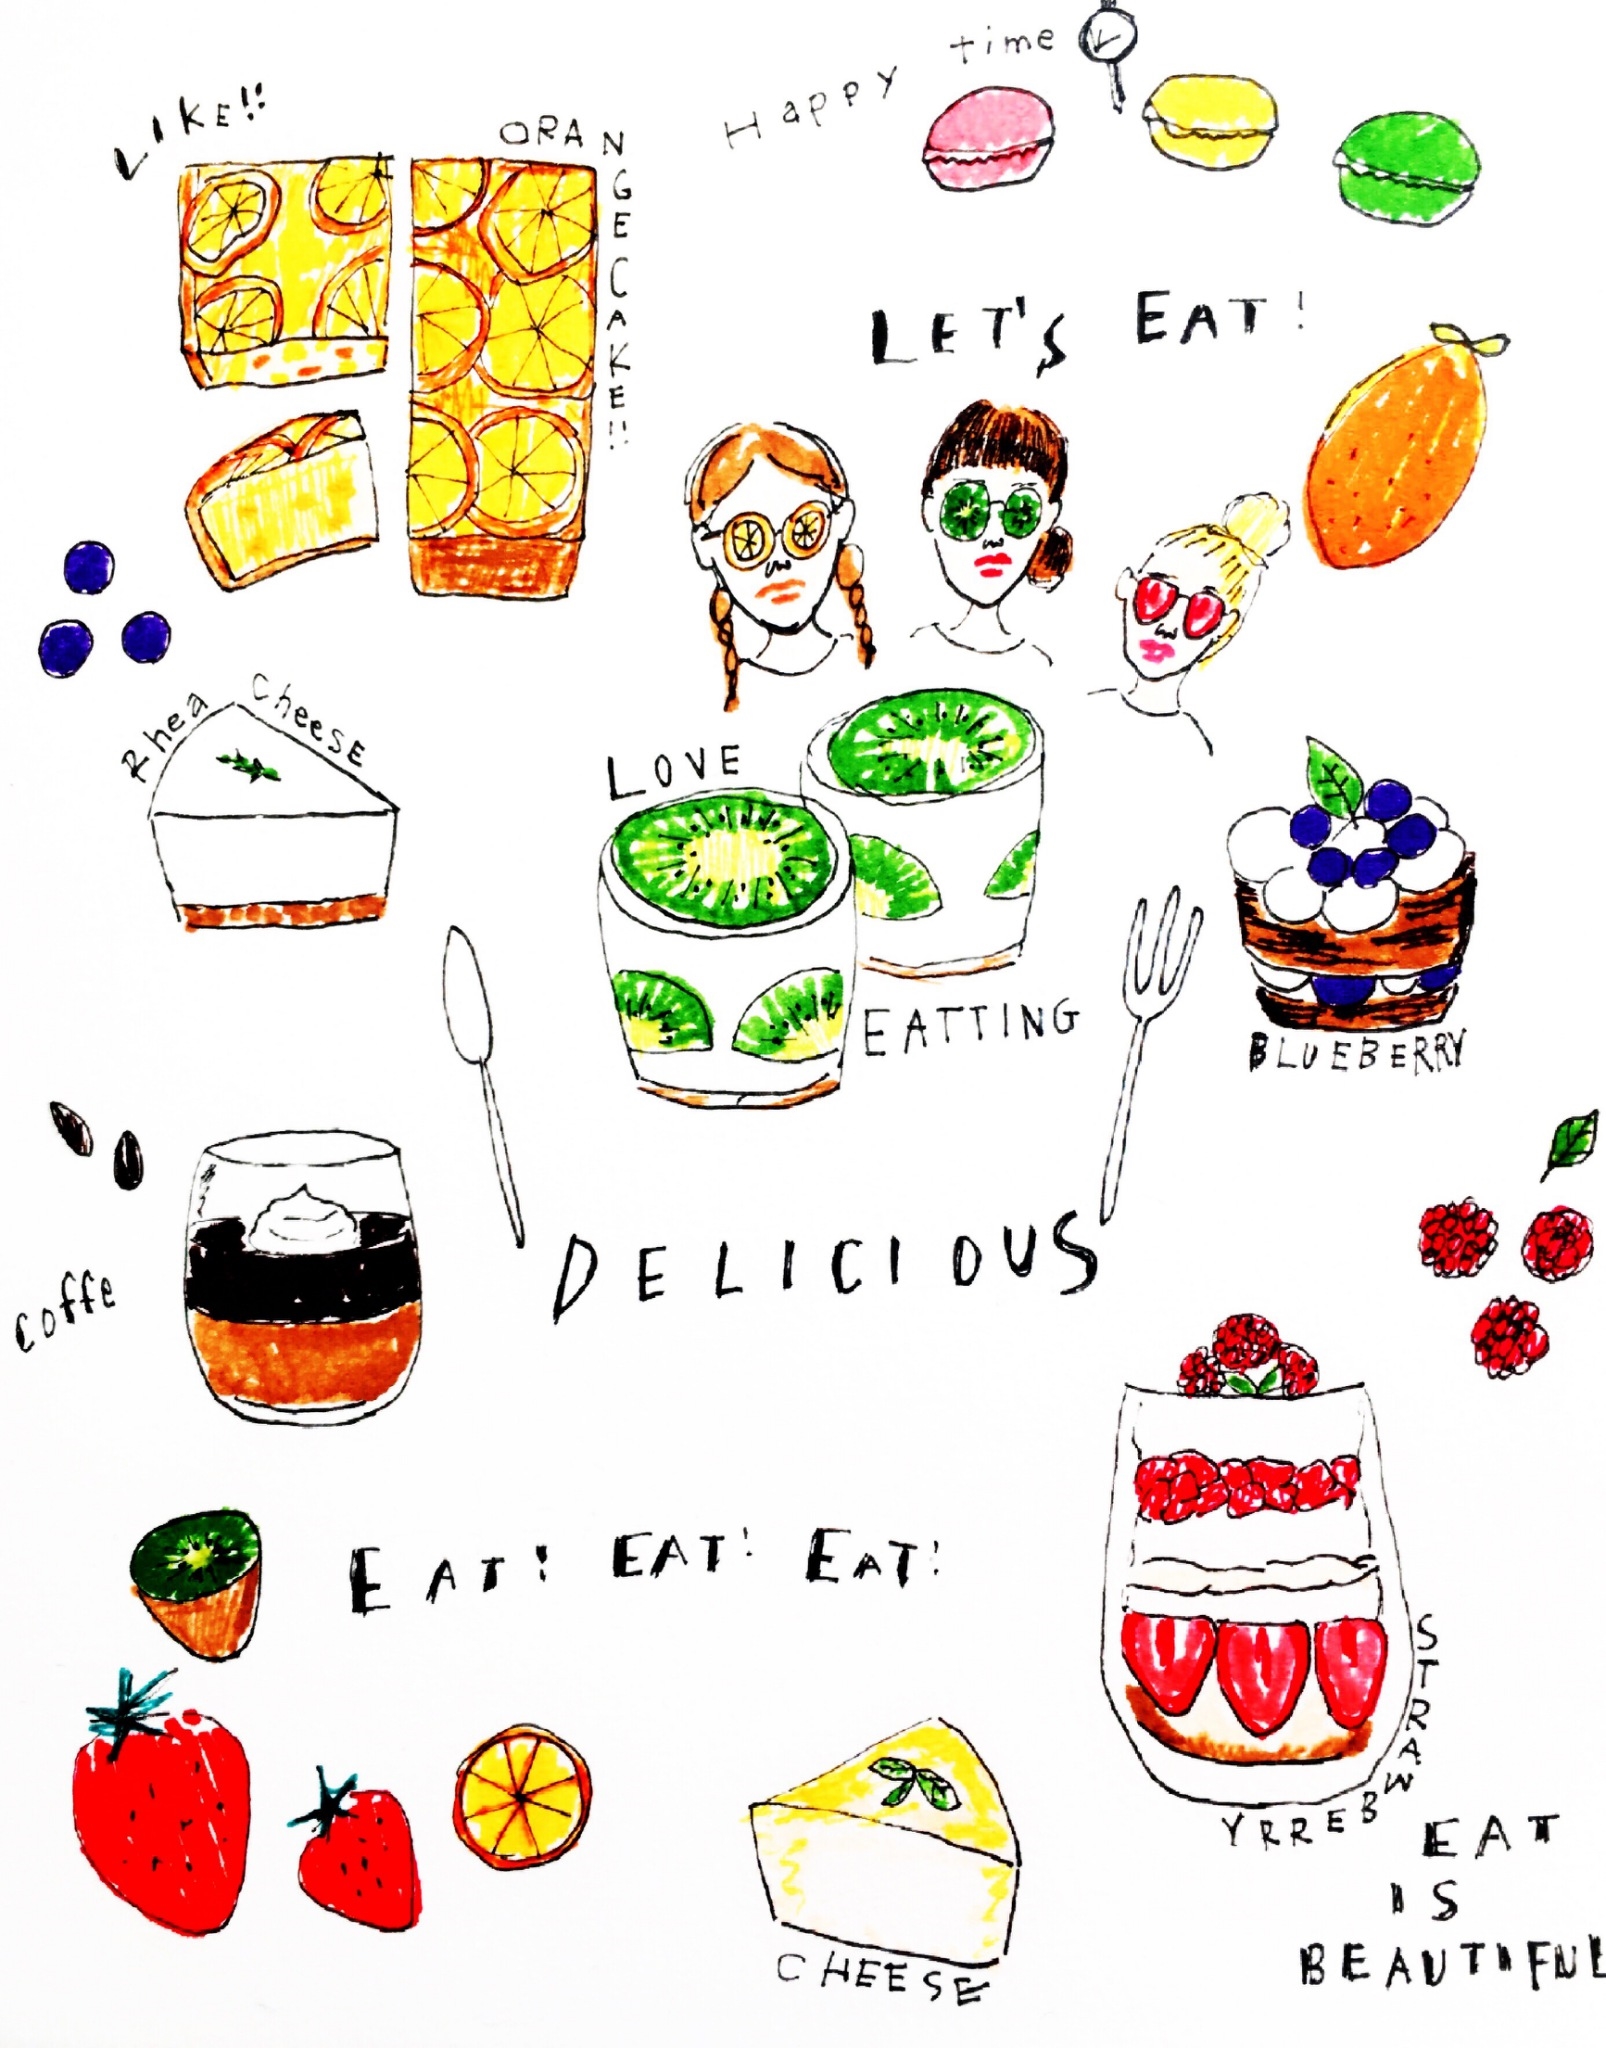 Happy time
LIKE!!
ORANGE CAKE!!
LET'S EAT!
Rhea Cheese
LOVE
EATTING
BLUEBERRY
coffe
DELICIOUS
EAT! EAT! EAT!
STRAWBERRY
EAT
IS
BEAUTIFUL
CHEESE